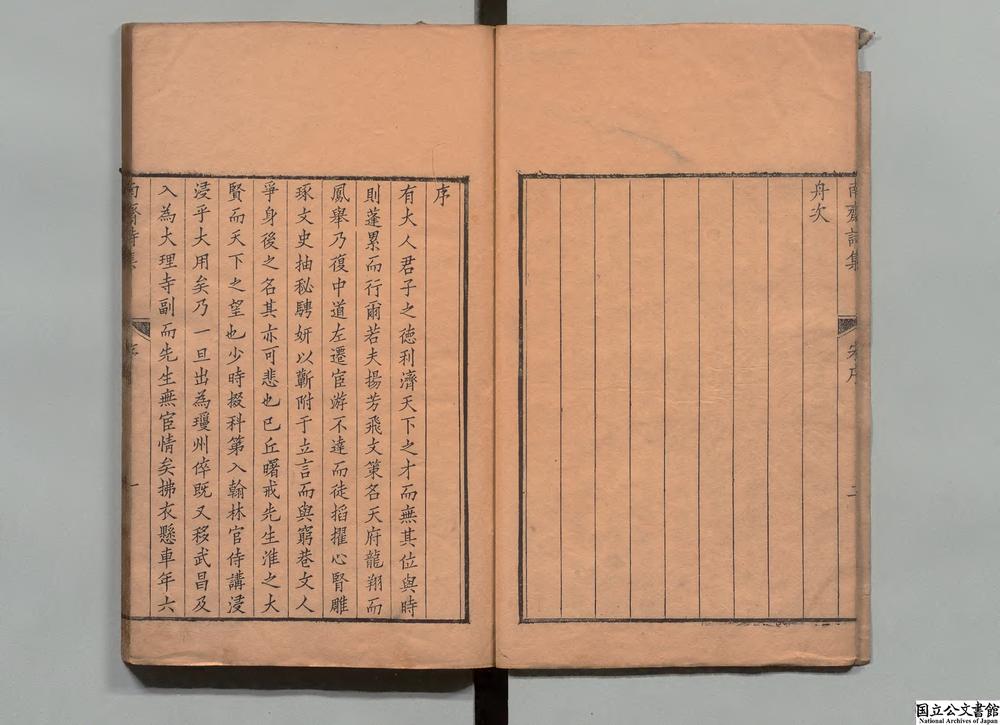 南齋詩集
宋序
二
舟次
序
有大人君子之徳利濟天下之才而無其位與時
則蓬累而行爾若夫揚芳飛文策名天府龍翔而
鳳舉乃復中道左遷宦游不達而徒搯擢心腎雕
琢文史抽秘騁妍以蘄附于立言而與窮巷文人
爭身後之名其亦可悲也已丘曙戒先生淮之大
賢而天下之望也少時掇科第入翰林官侍講浸
浸乎大用矣乃一旦出為瓊州倅既又移武昌及
入為大理寺副而先生無宦情矣拂衣懸車年六
南齋詩集
序
一
国立公文書館
National Archives of Japan